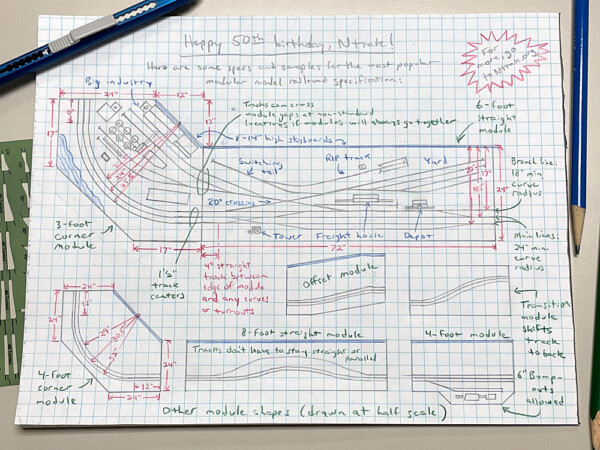 Happy 50th birthday, Ntrak!
Here are some specs and samples for the most popular
modular model railroad specification:
For
more, go
to Ntrak.org
Big industry
24"
12"
Tracks can cross
module gaps at non-standard
locations if modules will always go together
6-foot
straight
module
17"
12"
8"-14" high skyboards
Switching
tail
Rip track
Yard
Branch line:
18" min
curve
radius
20° crossing
24"
3-foot
corner
module
Tower
Freight house
Depot
Main lines:
24" min
curve
radius
17"
72"
1½"
track
centers
4" straight
track between
edge of module
and any curves
or turnouts
Offset module
Transition
module
shifts
track
to back
24"
12"
24"
24"
12"
24"
4-foot
corner
module
8-foot straight module
Tracks don't have to stay straight or
parallel
4-foot module
6" Bump-
outs
allowed
Other module shapes (drawn at half scale)